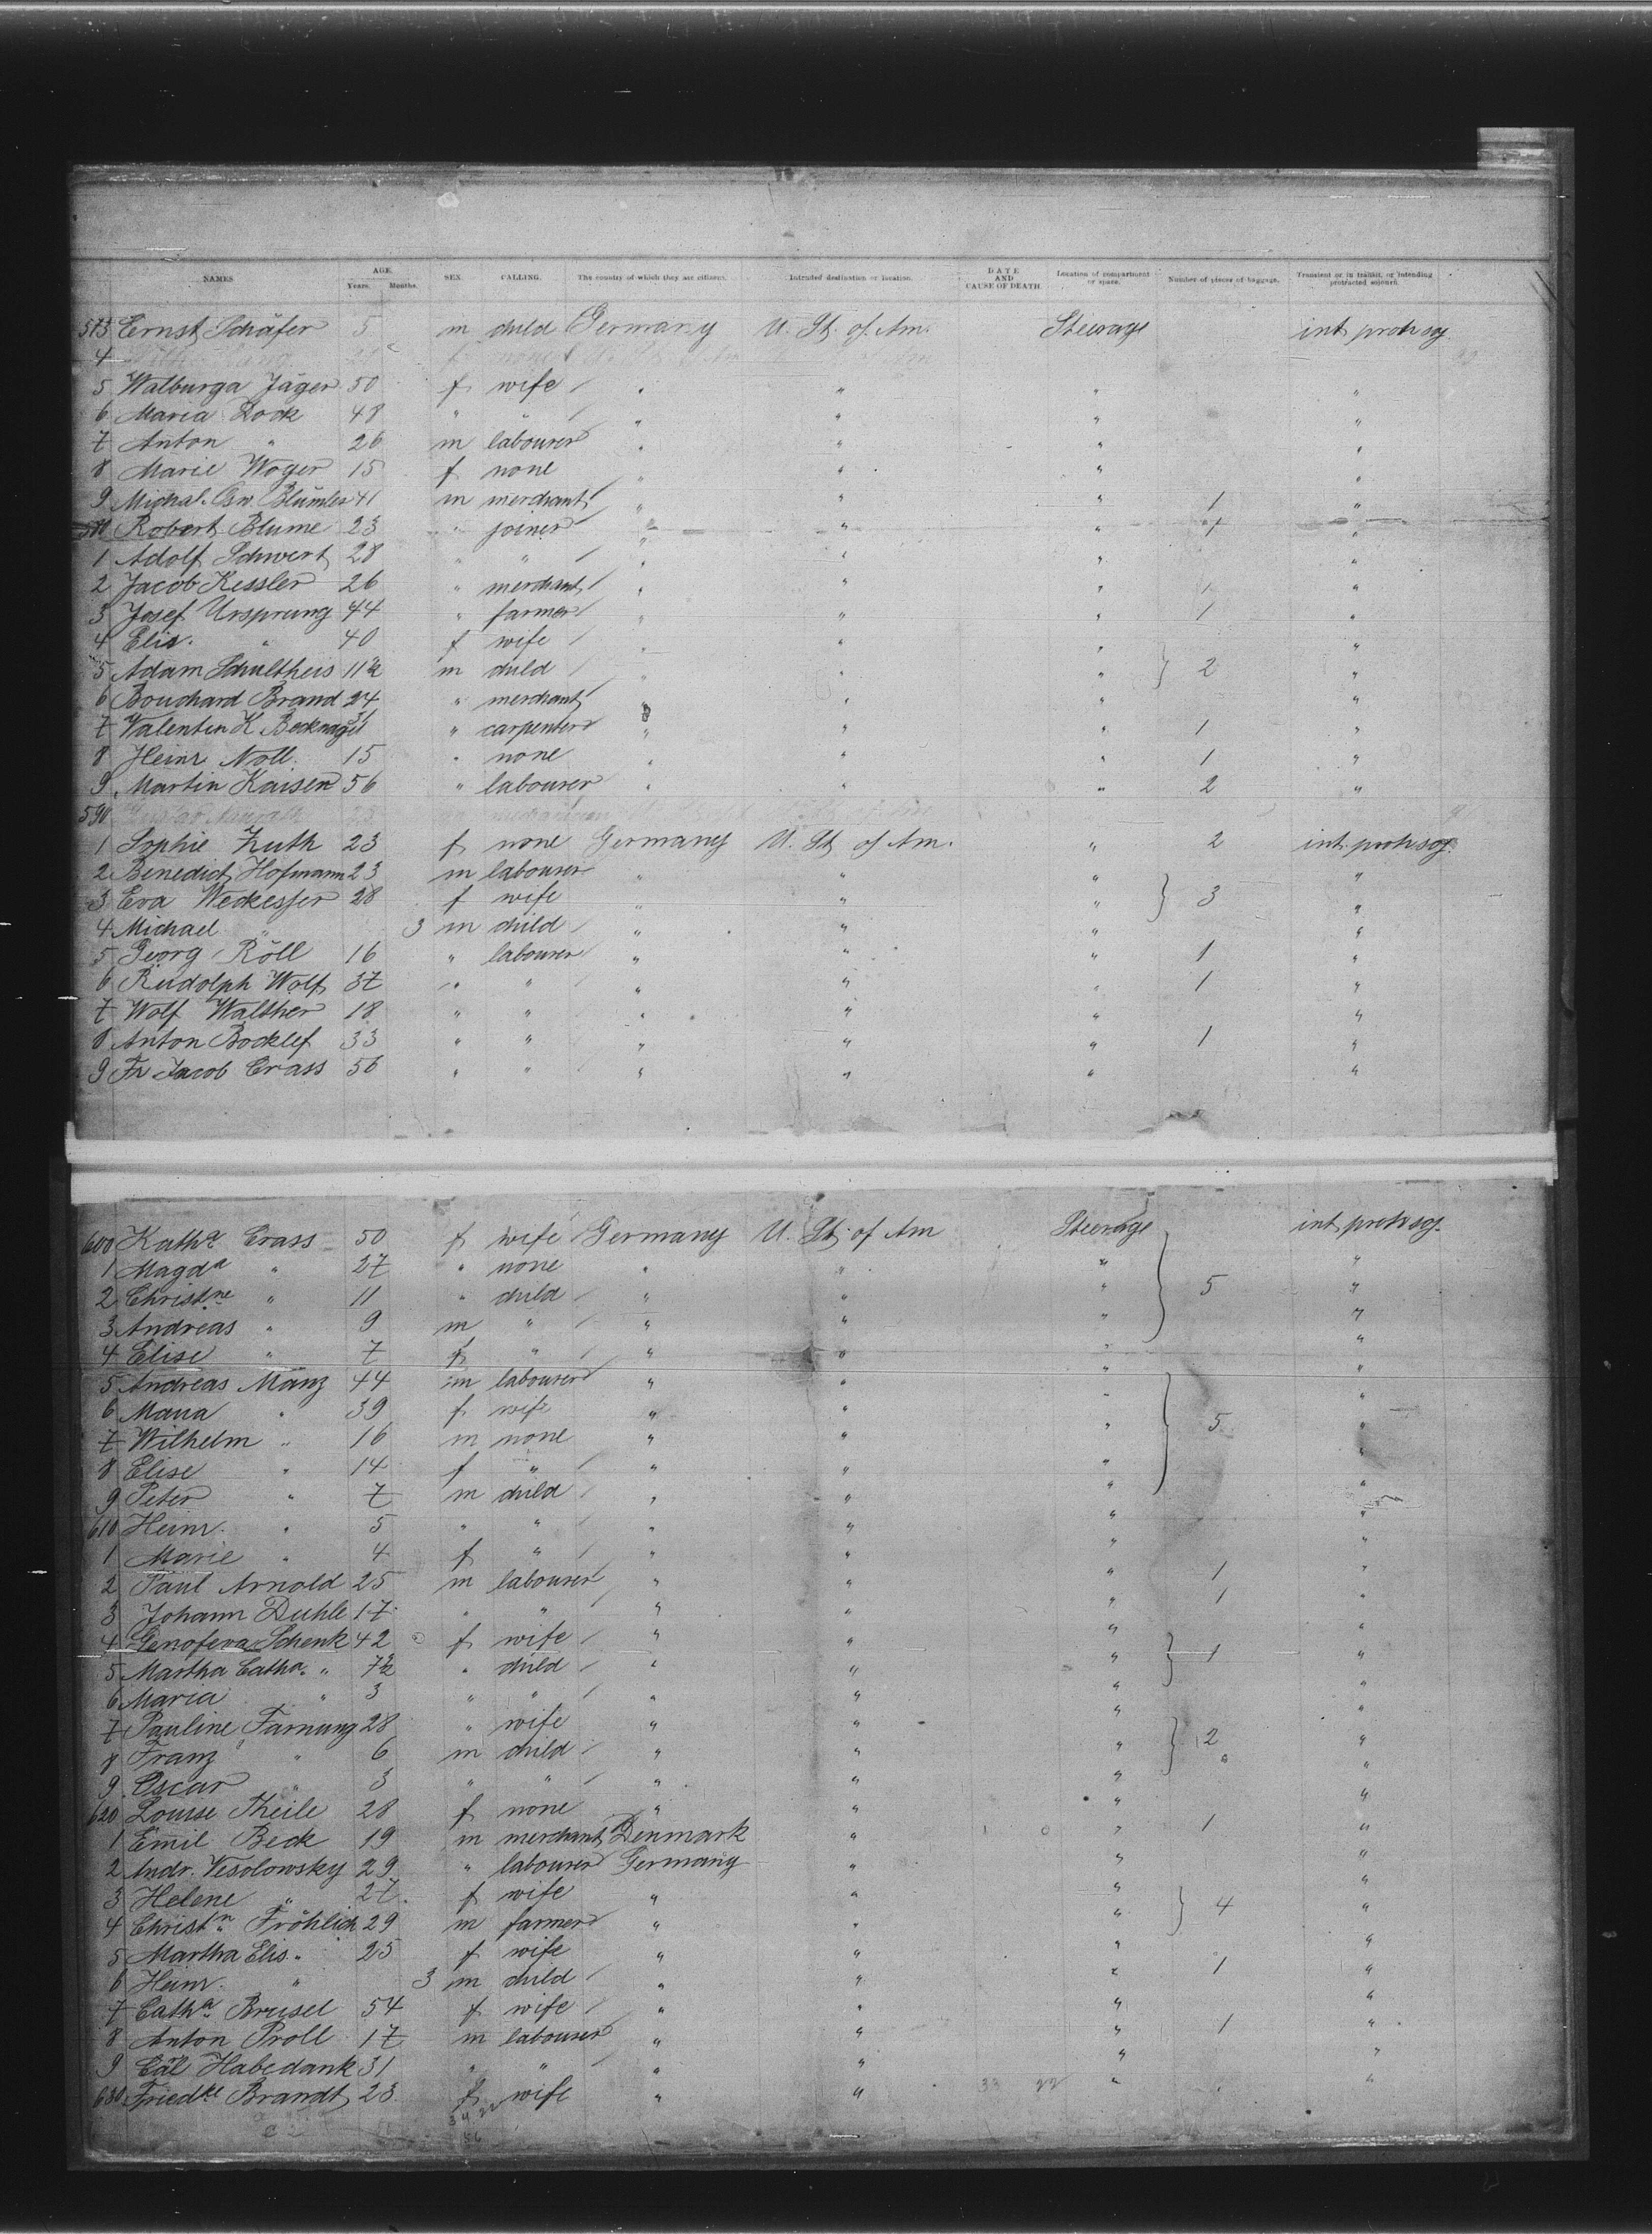 NAMES AGE. Years. Months. SEX. CALLING. The country of which they are citizens. Intended destination or location. DATE AND CAUSE OF DEATH. Location of compartment or space. Number of pieces of baggage. Transient or in transit, or intending protracted sojourn.
573 Ernst Schäfer 5 m child Germany U. St. of Am. Steerage int protr soj.
4 f none
5 Walburga Jäger 50 f wife " " " "
6 Maria Bock 48 " " " " " "
7 Anton " 26 m labourer " " " "
8 Marie Woger 15 f none " " " "
9 Michal. Osw. Blümler 41 m merchant " " " 1 "
580 Robert Blume 23 " joiner " " " 1 "
1 Adolf Schwert 28 " " " " " "
2 Jacob Kessler 26 " merchant " " " 1 "
3 Josef Ursprung 44 " farmer " " " 1 "
4 Elis. " 40 f wife " " " "
5 Adam Schultheis 11½ m child " " " 2 "
6 Bouchard Brand 24 " merchant " " " "
7 Valentin K. Becknagel 31 " carpenter " " " 1 "
8 Heinr. Noll 15 " none " " " 1 "
9 Martin Kaiser 56 " labourer " " " 2 "
590
1 Sophie Kuth 23 f none Germany U. St. of Am. " 2 int. protr soj.
2 Benedict Hofmann 23 m labourer " " " "
3 Eva Weckesser 28 f wife " " " 3 "
4 Michael " 3 m child " " " "
5 Georg Röll 16 " labourer " " " 1 "
6 Rudolph Wolf 37 " " " " " 1 "
7 Wolf Walther 18 " " " " " "
8 Anton Bocklet 33 " " " " " 1 "
9 Fr. Jacob Crass 56 " " " " " "
600 Katha Crass 50 f wife Germany U. St. of Am Steerage int protr soj.
1 Magda " 27 " none " " " "
2 Christne " 11 " child " " " 5 "
3 Andreas " 9 m " " " " "
4 Elise " 7 f " " " " "
5 Andreas Manz 44 m labourer " " " "
6 Maria " 39 f wife " " " "
7 Wilhelm " 16 m none " " " 5 "
8 Elise " 14 f " " " " "
9 Peter " 7 m child " " " "
610 Heinr. " 5 " " " " " "
1 Marie " 4 f " " " " "
2 Paul Arnold 25 m labourer " " " 1 "
3 Johann Duhle 17 " " " " " 1 "
4 Genofeva Schenk 42 f wife " " " "
5 Martha Catha. " 7½ " child " " " 1 "
6 Maria " 3 " " " " " "
7 Pauline Farnung 28 " wife " " " "
8 Franz " 6 m child " " " 2 "
9 Oscar " 3 " " " " " "
620 Louise Theile 28 f none " " " "
1 Emil Beck 19 m merchant Denmark " " 1 "
2 Andr. Vesolowsky 29 " labourer Germany " " "
3 Helene " 27 f wife " " " "
4 Christn. Fröhlich 29 m farmer " " " 4 "
5 Martha Elis. " 25 f wife " " " "
6 Heinr. " 3 m child " " " 1 "
7 Catha Brusel 54 f wife " " " "
8 Anton Proll 17 m labourer " " " 1 "
9 Cäl Habedank 31 " " " " " "
630 Friedke Brandt 23 f wife " " 33 22 " "